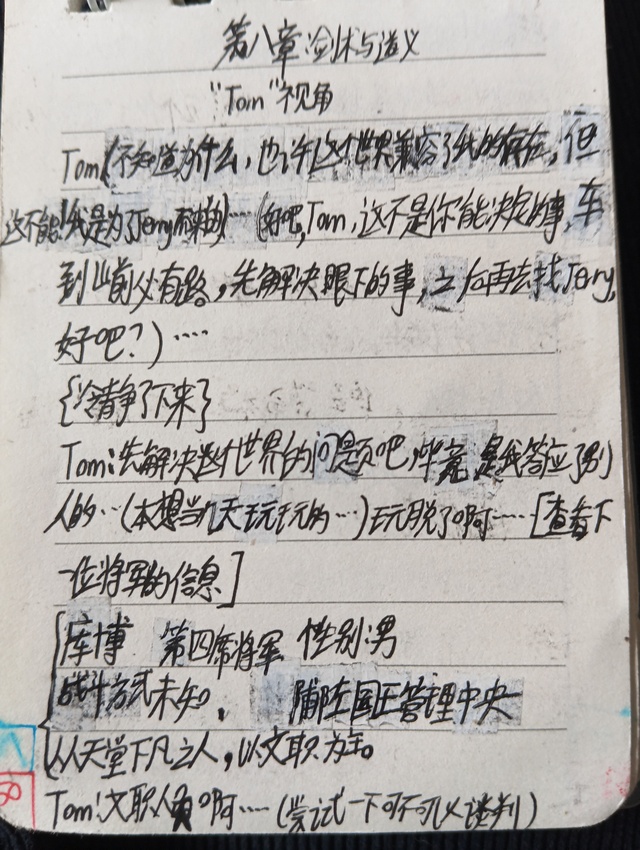 第八章:剑术与道义
"Tom"视角
Tom(不知道为什么,也许这个世界兼容了我的存在,但
这不能!我是为了Jerry而来的)……(好吧,Tom,这不是你能决定的事,车
到山前必有路,先解决眼下的事,之后再去找Jerry,
好吧?)……
{冷静了下来}
Tom:先解决这个世界的问题吧,毕竟是我答应了别
人的…(本想当几天玩玩的…)玩脱了啊……[查看下
一位将军的信息]
库博 第四席将军 性别:男
战斗方式未知, 辅佐国王管理中央
从天堂下凡之人,以文职为主。
Tom:文职人员啊……(尝试一下可不可以谈判)
8